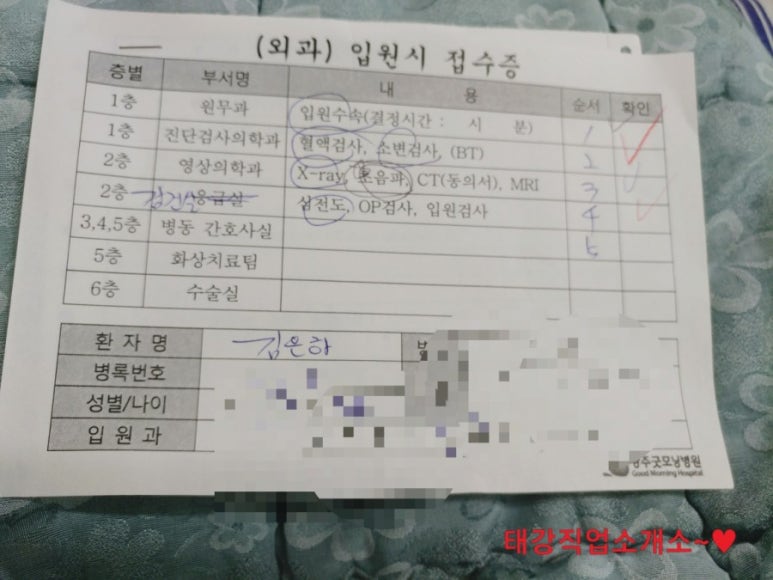 (외과) 입원시 접수증
층별 부서명 내 용 순서 확인
1층 원무과 입원수속(결정시간 : 시 분) 1
1층 진단검사의학과 혈액검사, 소변검사, (BT) 2
2층 영상의학과 X-ray, 초음파, CT(동의서), MRI 3
2층 응급실 심전도, OP검사, 입원검사 4
3,4,5층 병동 간호사실 5
5층 화상치료팀
6층 수술실
환 자 명 김은하
병록번호
성별/나이
입 원 과
굿모닝병원
Good Morning Hospital
태강직업소개소~♥